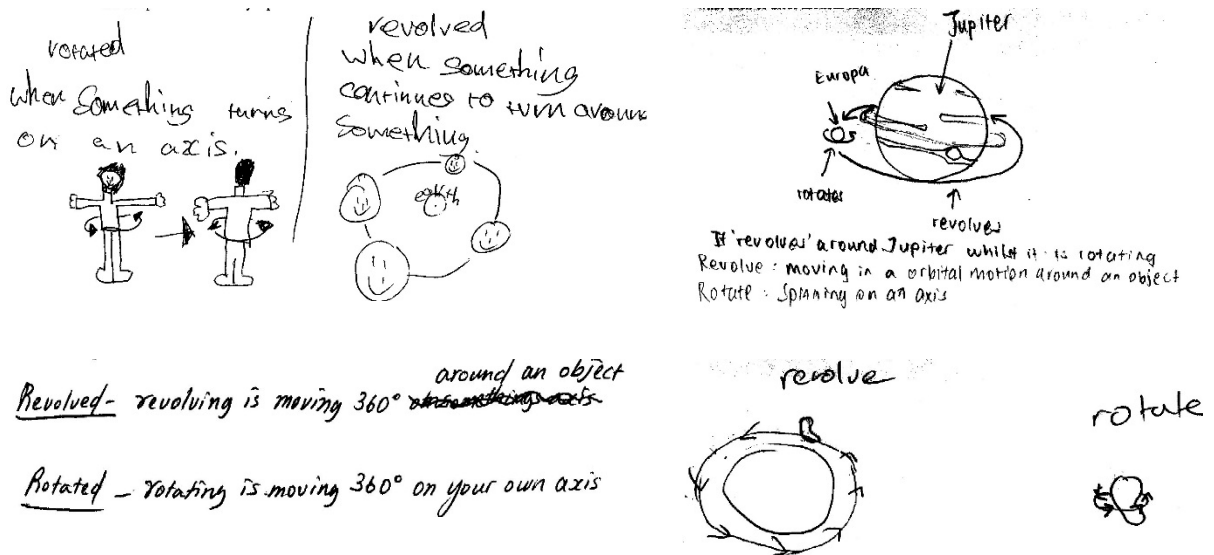 rotated
when something turns
on an axis.
revolved
when something
continues to turn around
something.
earth
Jupiter
Europa
rotates
revolves
It 'revolves' around Jupiter whilst it is rotating
Revolve : moving in a orbital motion around an object
Rotate : Spinning on an axis
around an object
Revolved - revolving is moving 360°
Rotated - rotating is moving 360° on your own axis
revolve
rotate